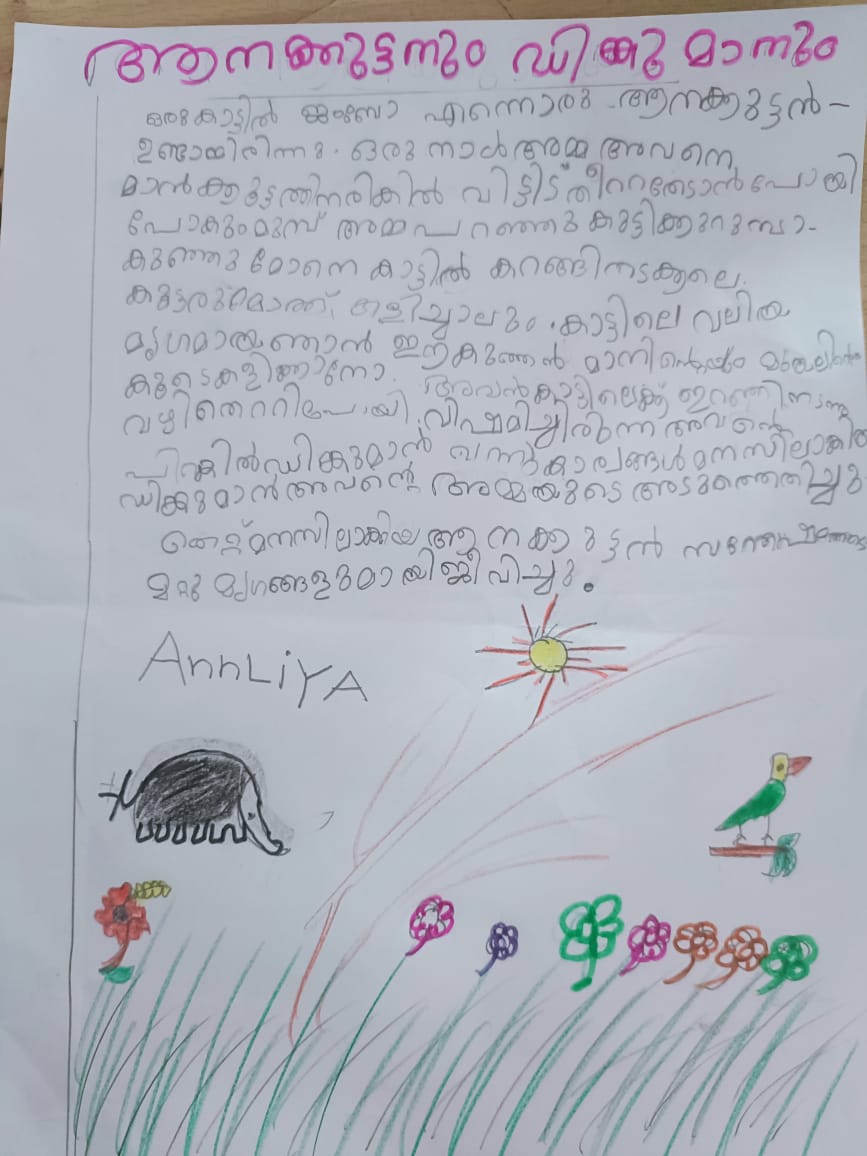 ആനക്കുട്ടനും ഡിങ്കു മാനും
ഒരുകാട്ടിൽ ജംബോ എന്നൊരു ആനക്കുട്ടൻ-
ഉണ്ടായിരിന്നു. ഒരു നാൾ അമ്മ അവനെ
മാൻക്കൂട്ടത്തിനരികിൽ വിട്ടിട് തീറ്റതേടാൻ പോയി
പോകുംമുമ്പ് അമ്മ പറഞ്ഞു കുട്ടിക്കുറുമ്പാ-
കുഞ്ഞുമോനെ കാട്ടിൽ കറങ്ങിനടക്കല്ലെ.
കൂട്ടരുമൊത്ത് കളിച്ചാലും. കാട്ടിലെ വലിയ
മൃഗമായഞാൻ ഈകുഞ്ഞൻ മാനിന്റെയും
കൂടെകളിക്കാനോ. അവൻകാട്ടിലെക്ക് ഇറങ്ങിനടന്നു
വഴിതെററിപോയി. വിഷമിച്ചിരുന്ന അവന്റെ
പിന്നിൽഡിങ്കുമാൻ വന്നു കാര്യങ്ങൾമനസിലാക്കിയ
ഡിങ്കുമാൻഅവന്റെ അമ്മയുടെ അടുത്തെത്തിച്ചു.
തെറ്റ്മനസിലാക്കിയ ആനക്കുട്ടൻ സന്തോഷത്തോടെ
മറ്റു മൃഗങ്ങളുമായിജീവിച്ചു.
AnnLiYA